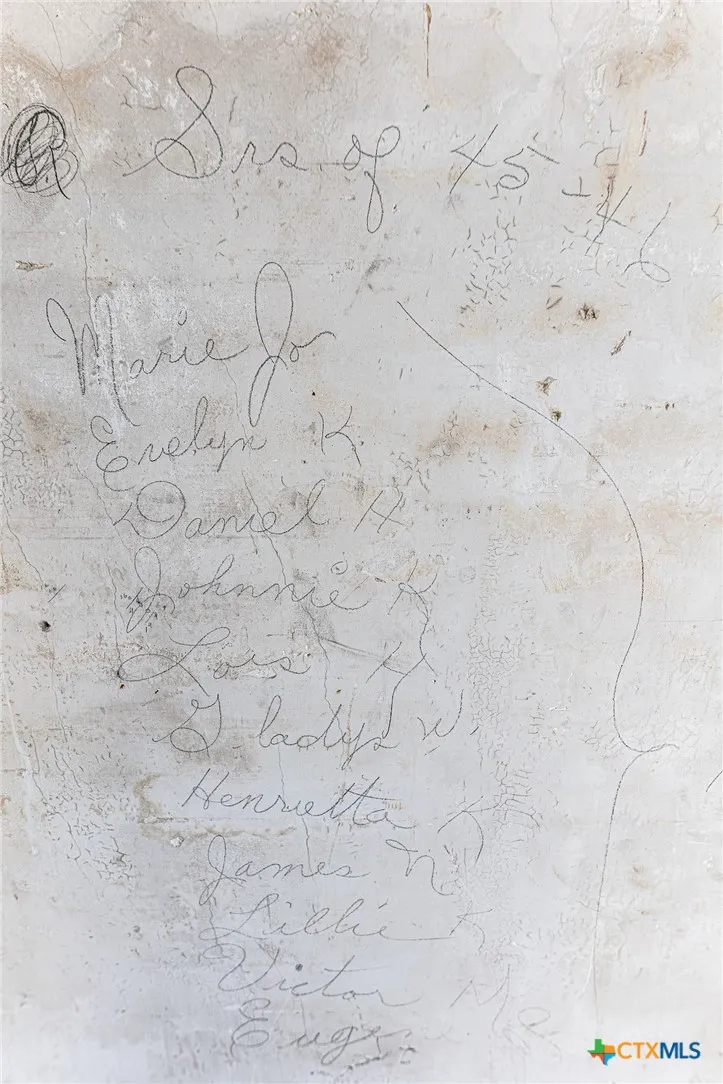 Srs of 45-46
Marie Jo
Evelyn K.
Daniel H
Johnnie K
Lois H
Gladys W.
Henrietta K
James N
Lillie K
Victor
CTXMLS